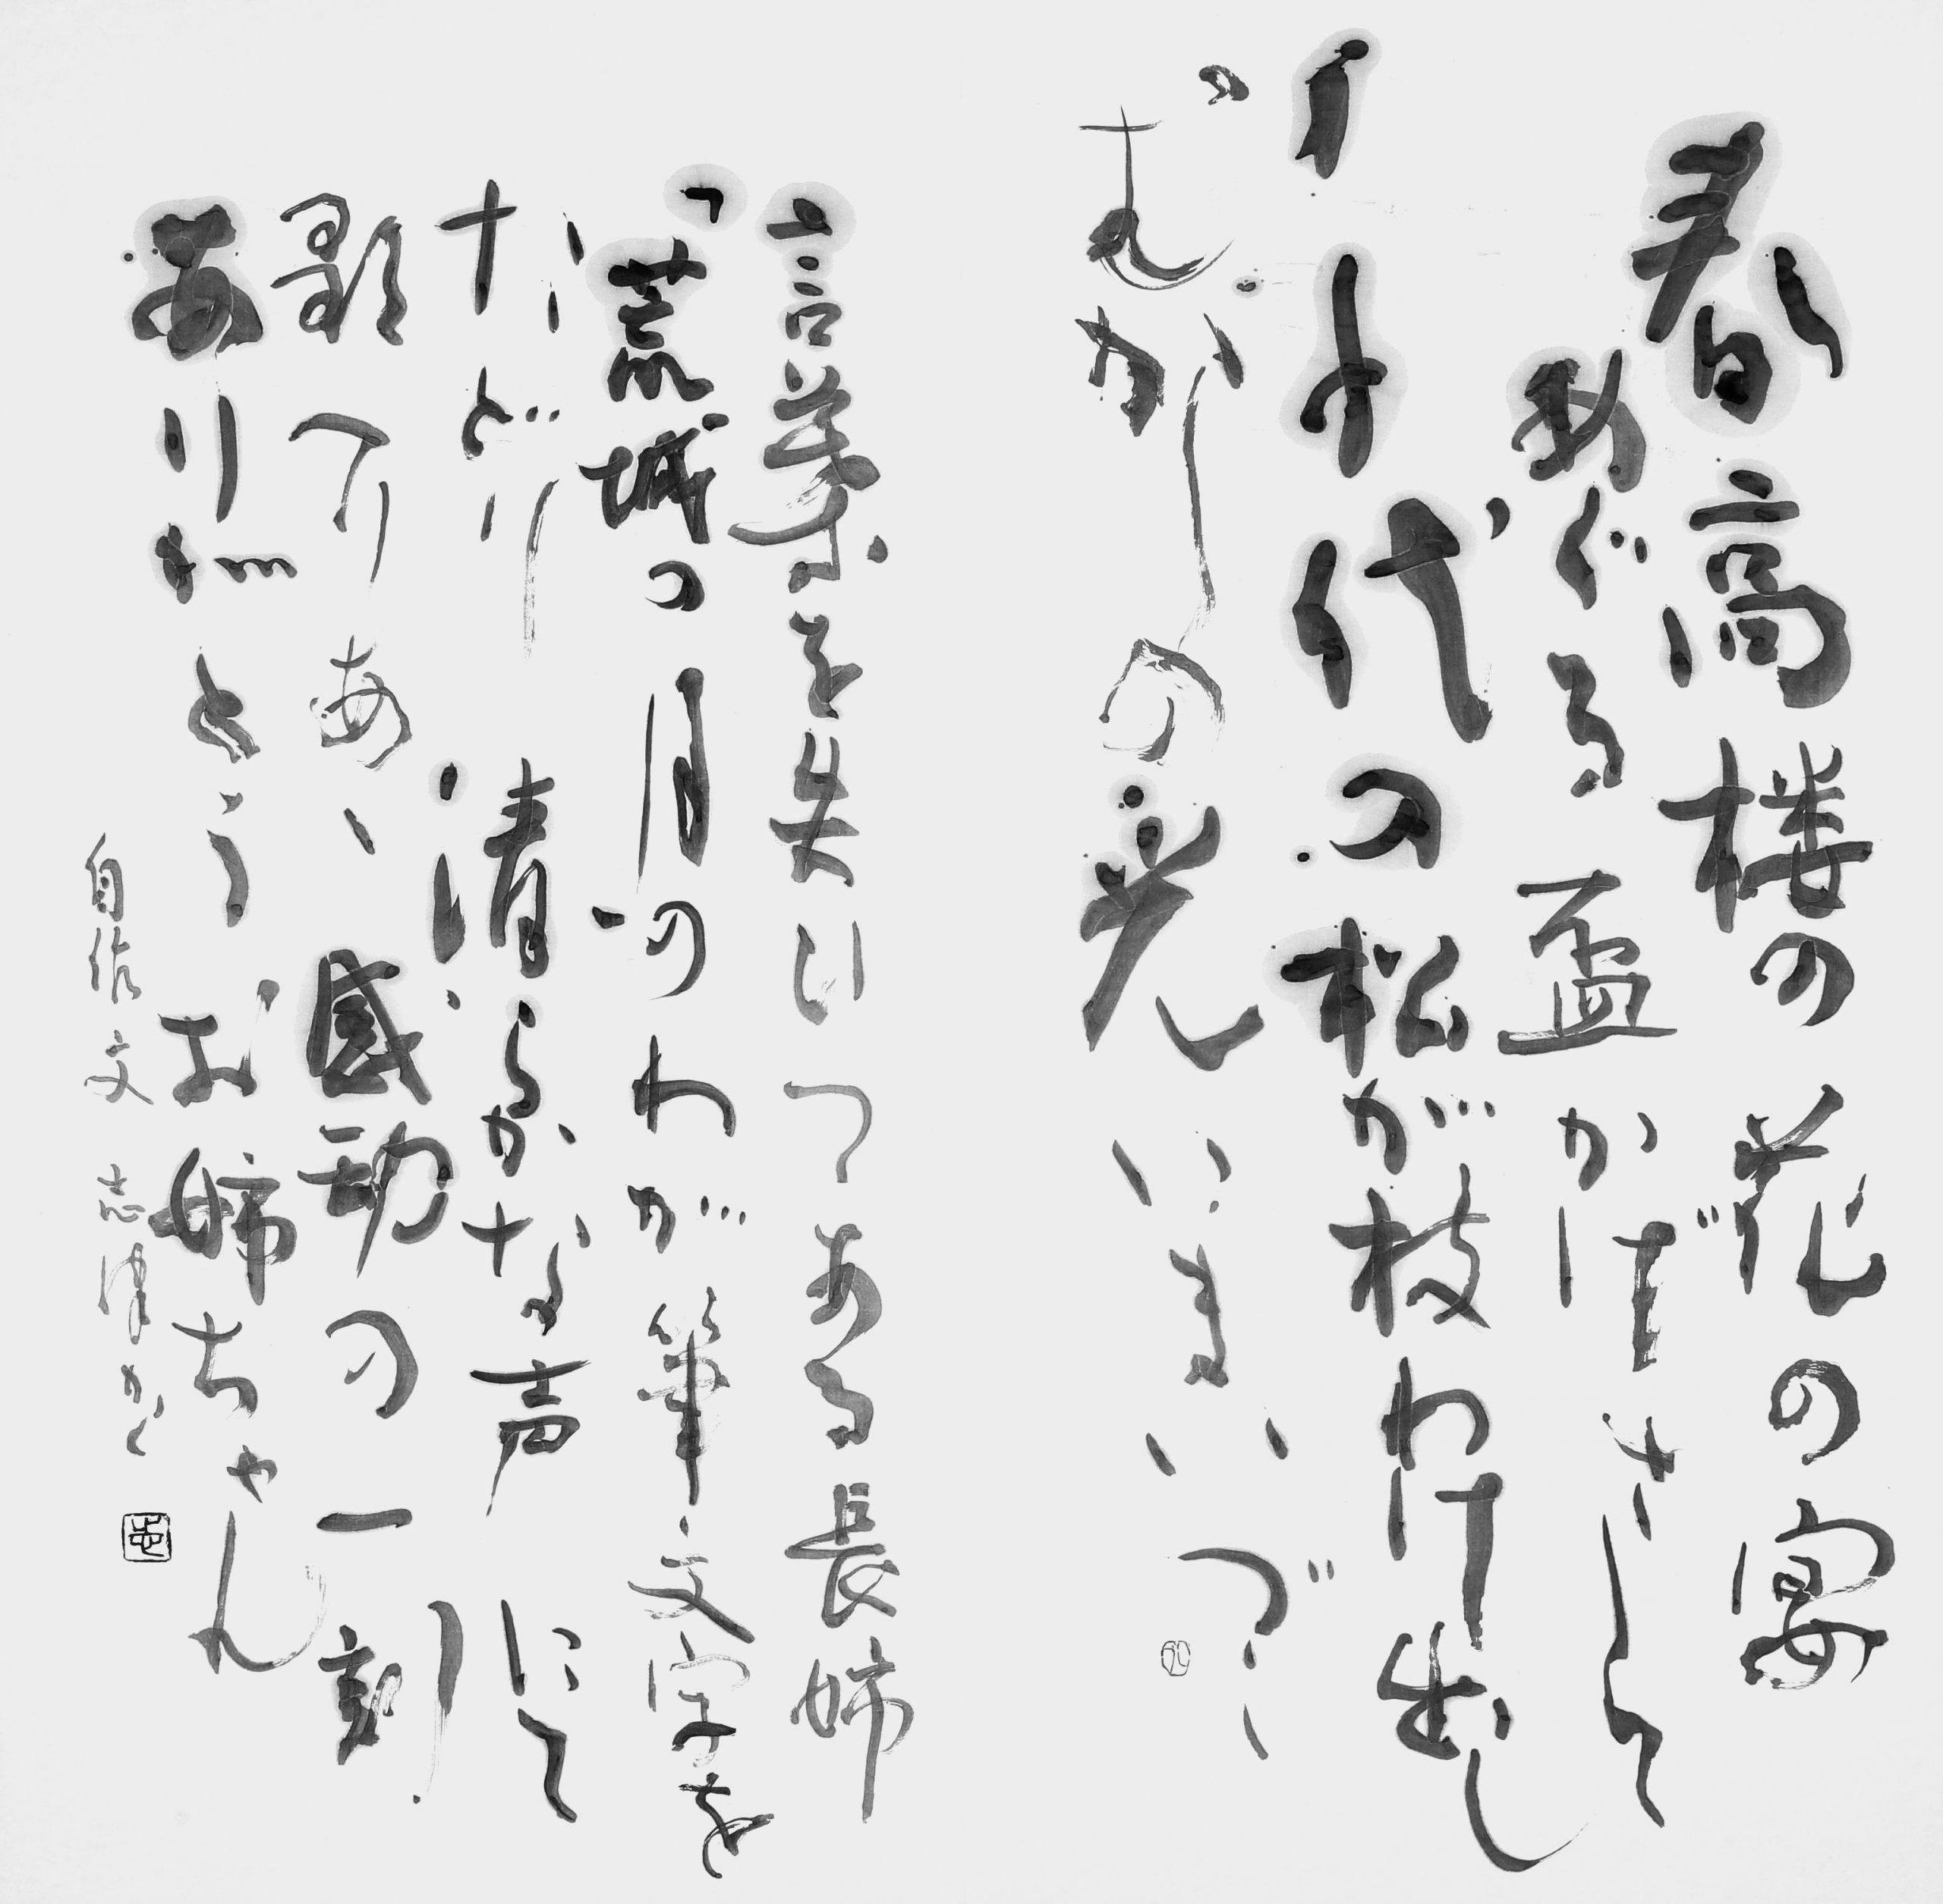 春高楼の花の宴
めぐる盃かげさして
千代の松が枝わけ出し
むかしの光いまいづこ
言葉を失ひつゝある長姉
「荒城の月」のわが筆文字を
たどり 清らかな声にて
歌へり あゝ 感動の一刻
ありがとう お姉ちゃん
自作文 志津かく